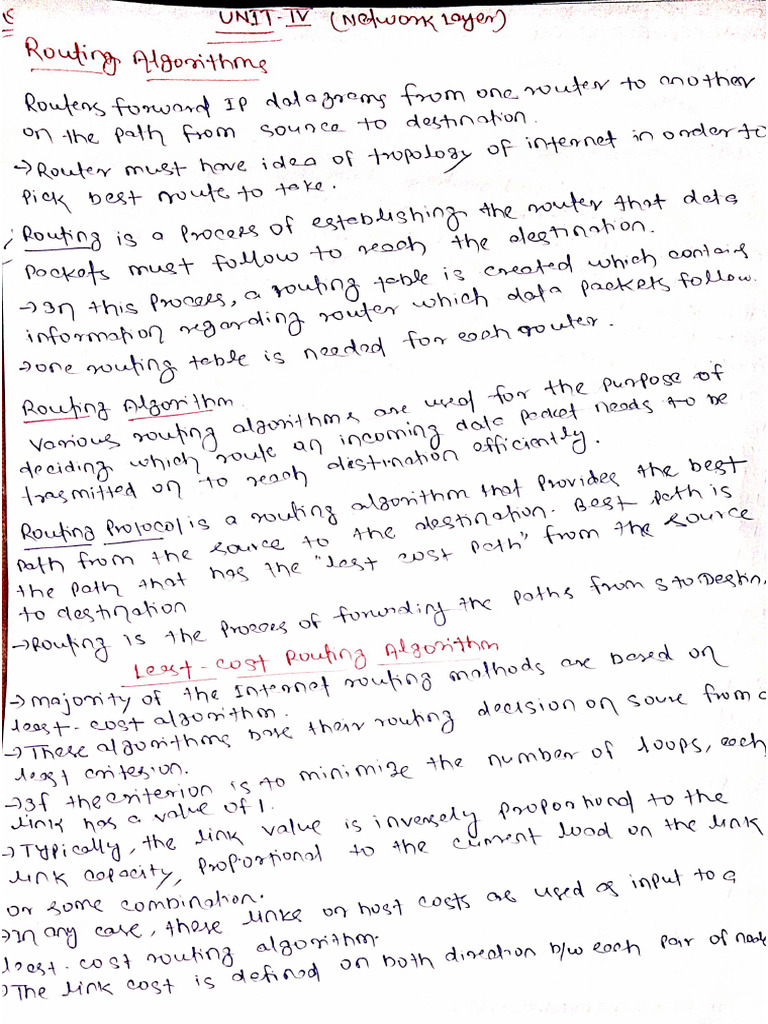 UNIT-IV (Network Layer)
Routing Algorithms
Routers forward IP datagrams from one router to another
on the path from source to destination.
→Router must have idea of tropology of internet in order to
pick best route to take.
Routing is a Process of establishing the router that data
Packets must follow to reach the destination.
→In this Process, a routing table is created which contains
information regarding router which data packets follow.
→one routing table is needed for each router.
Routing Algorithm
Various routing algorithms are used for the purpose of
deciding which route an incoming data packet needs to be
trasmitted on to reach destination efficiently.
Routing Protocol is a routing algorithm that Provides the best
path from the source to the destination. Best path is
the path that has the "lest cost path" from the source
to destination
→Routing is the Process of forwording the paths from S to Destin.
Least-cost Routing Algorithm
→majority of the Internet routing methods are based on
least-cost algorithm.
→These algorithms base their routing decision on soure from a
least critesion.
→If the criterion is to minimize the number of loops, each
link has a value of 1.
→Typically, the link value is inversely proportional to the
link capacity, proportional to the current load on the link
or some combination.
→In any case, these links or host costs are used as input to a
least-cost routing algorithm.
→The link cost is defined on both direction b/w each pair of node